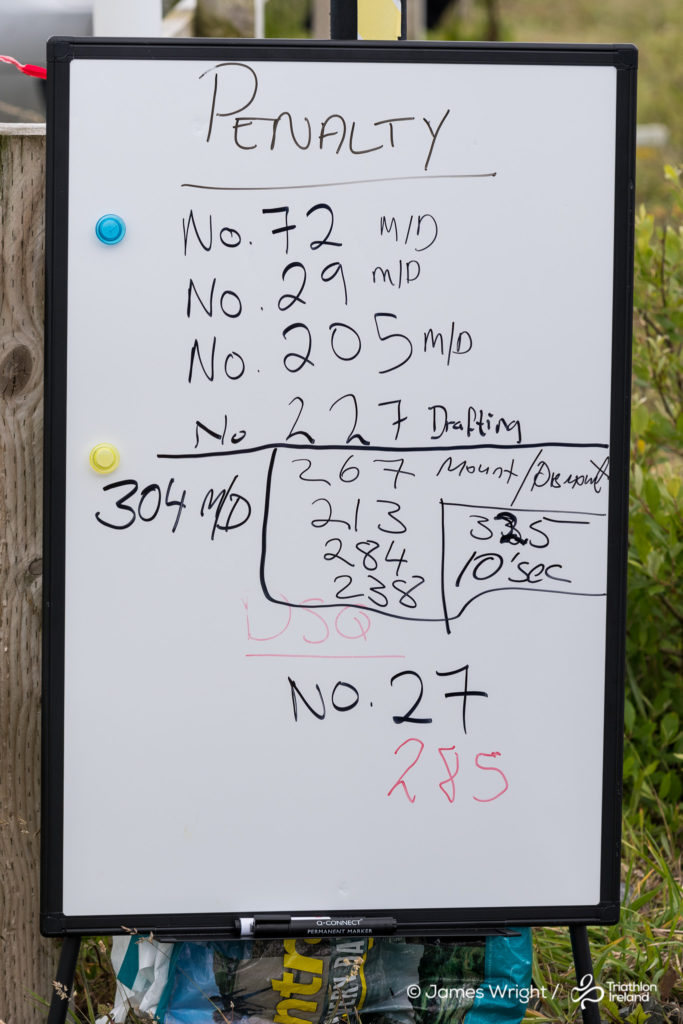 PENALTY
No. 72 M/D
No. 29 M/D
No. 205 M/D
No 227 Drafting
267 Mount/Dismount
304 M/D
213
284
238
325
10 sec
DSQ
No. 27
285
Q-CONNECT
PERMANENT MARKER
© James Wright / Triathlon
Ireland